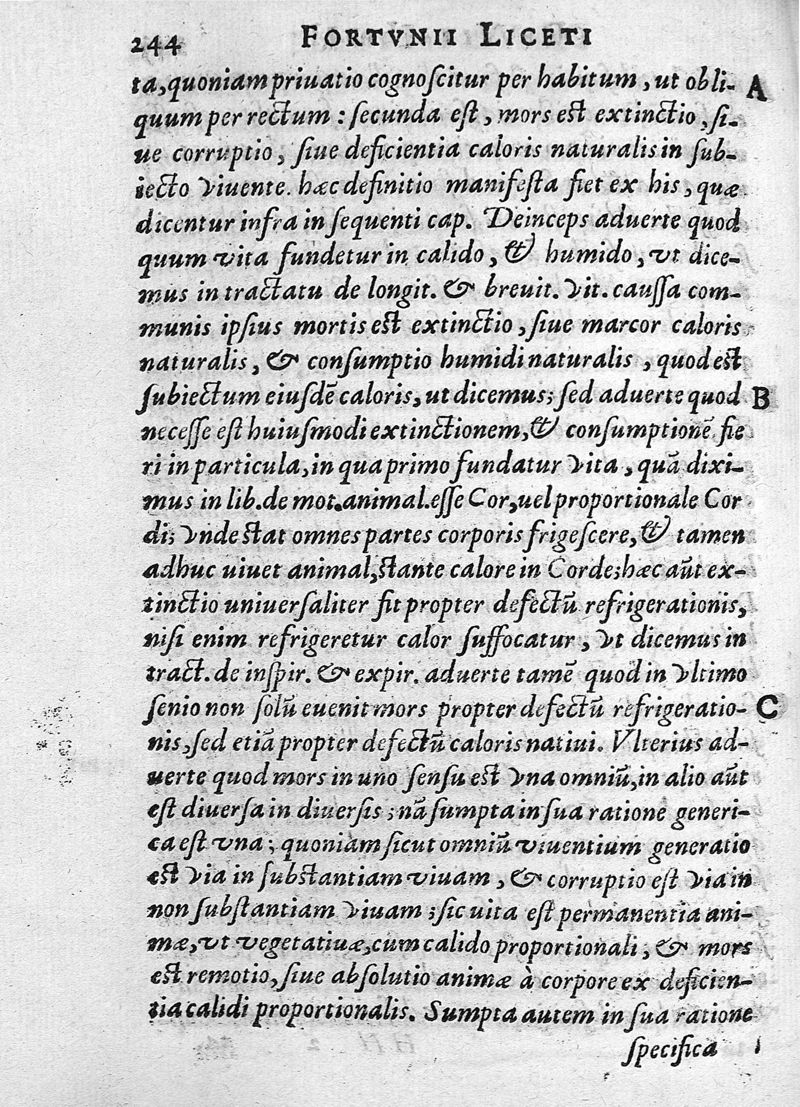 244 FORTVNII LICETI
ta, quoniam priuatio cognoſcitur per habitum, ut obli- A
quum per rectum: ſecunda eſt, mors eſt extinctio, ſi-
ue corruptio, ſiue deficientia caloris naturalis in ſub-
iecto viuente. hæc definitio manifeſta fiet ex his, quæ
dicentur infra in ſequenti cap. Deinceps aduerte quod
quum vita fundetur in calido, & humido, vt dice-
mus in tractatu de longit. & breuit. vit. cauſſa com-
munis ipſius mortis eſt extinctio, ſiue marcor caloris
naturalis, & conſumptio humidi naturalis, quod eſt
ſubiectum eiuſdē caloris, ut dicemus; ſed aduerte quod B
neceſſe eſt huiuſmodi extinctionem, & conſumptionē fie
ri in particula, in qua primo fundatur vita, quā dixi-
mus in lib. de mot. animal. eſſe Cor, uel proportionale Cor
di; vnde ſtat omnes partes corporis frigeſcere, & tamen
adhuc uiuet animal, ſtante calore in Corde; hæc aūt ex-
tinctio uniuerſaliter fit propter defectū refrigerationis,
niſi enim refrigeretur calor ſuffocatur, vt dicemus in
tract. de inſpir. & expir. aduerte tamē quod in vltimo
ſenio non ſolū euenit mors propter defectū refrigeratio- C
nis, ſed etiā propter defectū caloris natiui. Vlterius ad-
uerte quod mors in uno ſenſu eſt vna omniū, in alio aūt
eſt diuerſa in diuerſis; nā ſumpta in ſua ratione generi-
ca eſt vna; quoniam ſicut omniū viuentium generatio
eſt via in ſubſtantiam viuam, & corruptio eſt via in
non ſubſtantiam viuam; ſic uita eſt permanentia ani-
mæ, vt vegetatiuæ, cum calido proportionali; & mors
eſt remotio, ſiue abſolutio animæ à corpore ex deficien-
tia calidi proportionalis. Sumpta autem in ſua ratione
ſpecifica